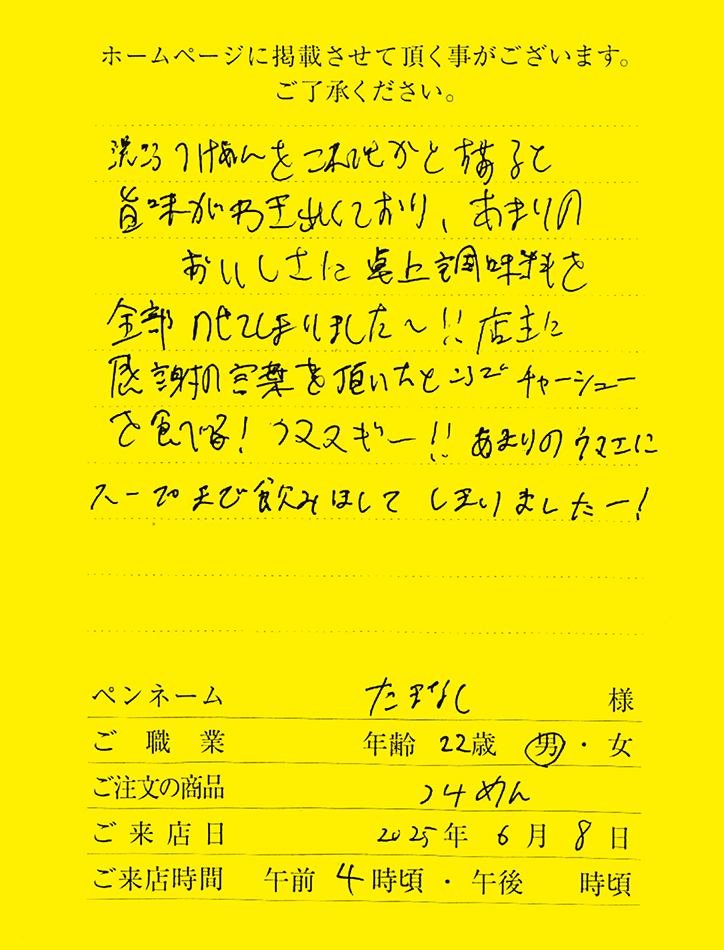 ホームページに掲載させて頂く事がございます。
ご了承ください。
つけめんをこれでもかと
旨味があふれており、あまりの
おいしさに卓上調味料を
全部のせてしまりました〜!!店主に
感謝の言葉を頂いたところでチャーシュー
を食べる!ウマスギー!!あまりのウマエに
スープまで飲みほしてしまりましたー!
ペンネーム たまなし 様
ご職業 年齢 22歳 男・女
ご注文の商品 つけめん
ご来店日 2025年 6月 8日
ご来店時間 午前 4時頃・午後 時頃